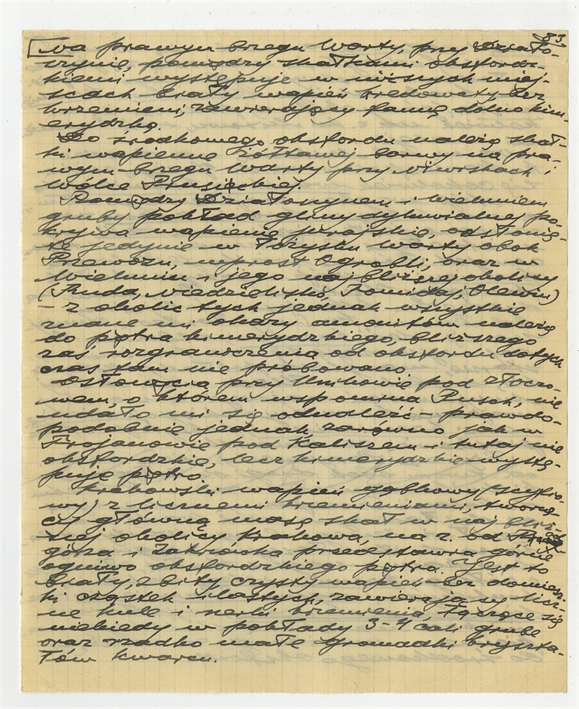 83
Na prawym brzegu Warty, przy Działo-
szynie, pomiędzy skałkami oksfordz-
kiemi występuje w niższych miej-
scach biały wapień kredowaty bez
krzemieni, zawierający faunę dolno kim-
erydzką.
Do środkowego oksfordu należą skał-
ki wapienne żółtawej barwy na pra-
wym brzegu Warty przy Niwiskach i
Wólce Prusieckiej.
Pomiędzy Działoszynem i Wieluniem
gruby pokład gliny dyluwialnej po-
krywa wapienie jurajskie, odsłonię-
te jedynie w łożysku Warty obok
Przewozu, wprost Ogrobli, oraz w
Wieluniu i jego najbliższej okolicy
(Ruda, Niedzielsko, Olewin)
– z okolic tych jednak wszystkie
znane mi okazy amonitów należą
do piętra kimerydzkiego, bliższego
zaś rozgraniczenia od oksfordu dotych
czas tam nie próbowano.
Odsłonięcia przy Unikowie pod Złocze-
wem, o którem wspomina Pusch, nie
udało mi się odnaleźć – prawdo-
podobnie jednak zarówno jak w
Trojanowie pod Kaliszem i tutaj nie
oksfordzkie, lecz kimerydzkie wystę-
puje piętro.
Krakowski wapień gąbkowy (scyfio-
wy) z licznemi krzemieniami, tworzą-
cy główną masę skał w najbliż-
szej okolicy Krakowa, na z. od
górza i Zakrzówka przedstawia górne
ogniwo oksfordzkiego piętra. Jest to
biały, zbity czysty wapień bez domiesz-
ki cząstek ilastych, zawierający licz-
ne kule i nerki krzemienia, łączące się
niekiedy w pokłady 3–4 cali grube
oraz rzadko małe gromadki kryszta-
łów kwarcu.